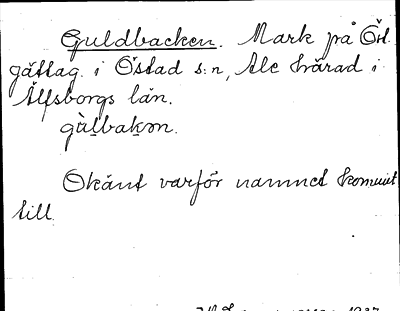 Guldbacken. Mark på Öst-
gättag. i Östad s:n, Ale härad i
Älfsborgs län.
gùlbakən.
Okänt varför namnet kommit
till.